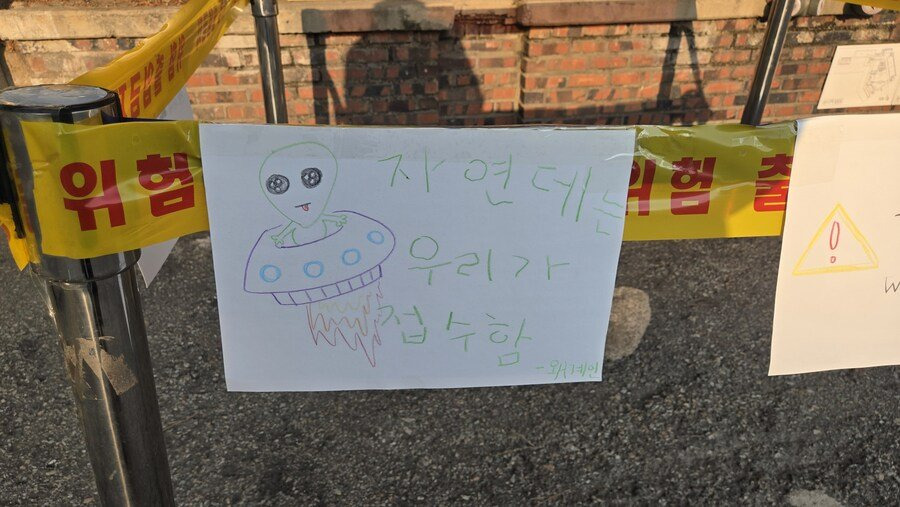 위험
자연데는
우리가
접수함
-외계인
위험 출
W